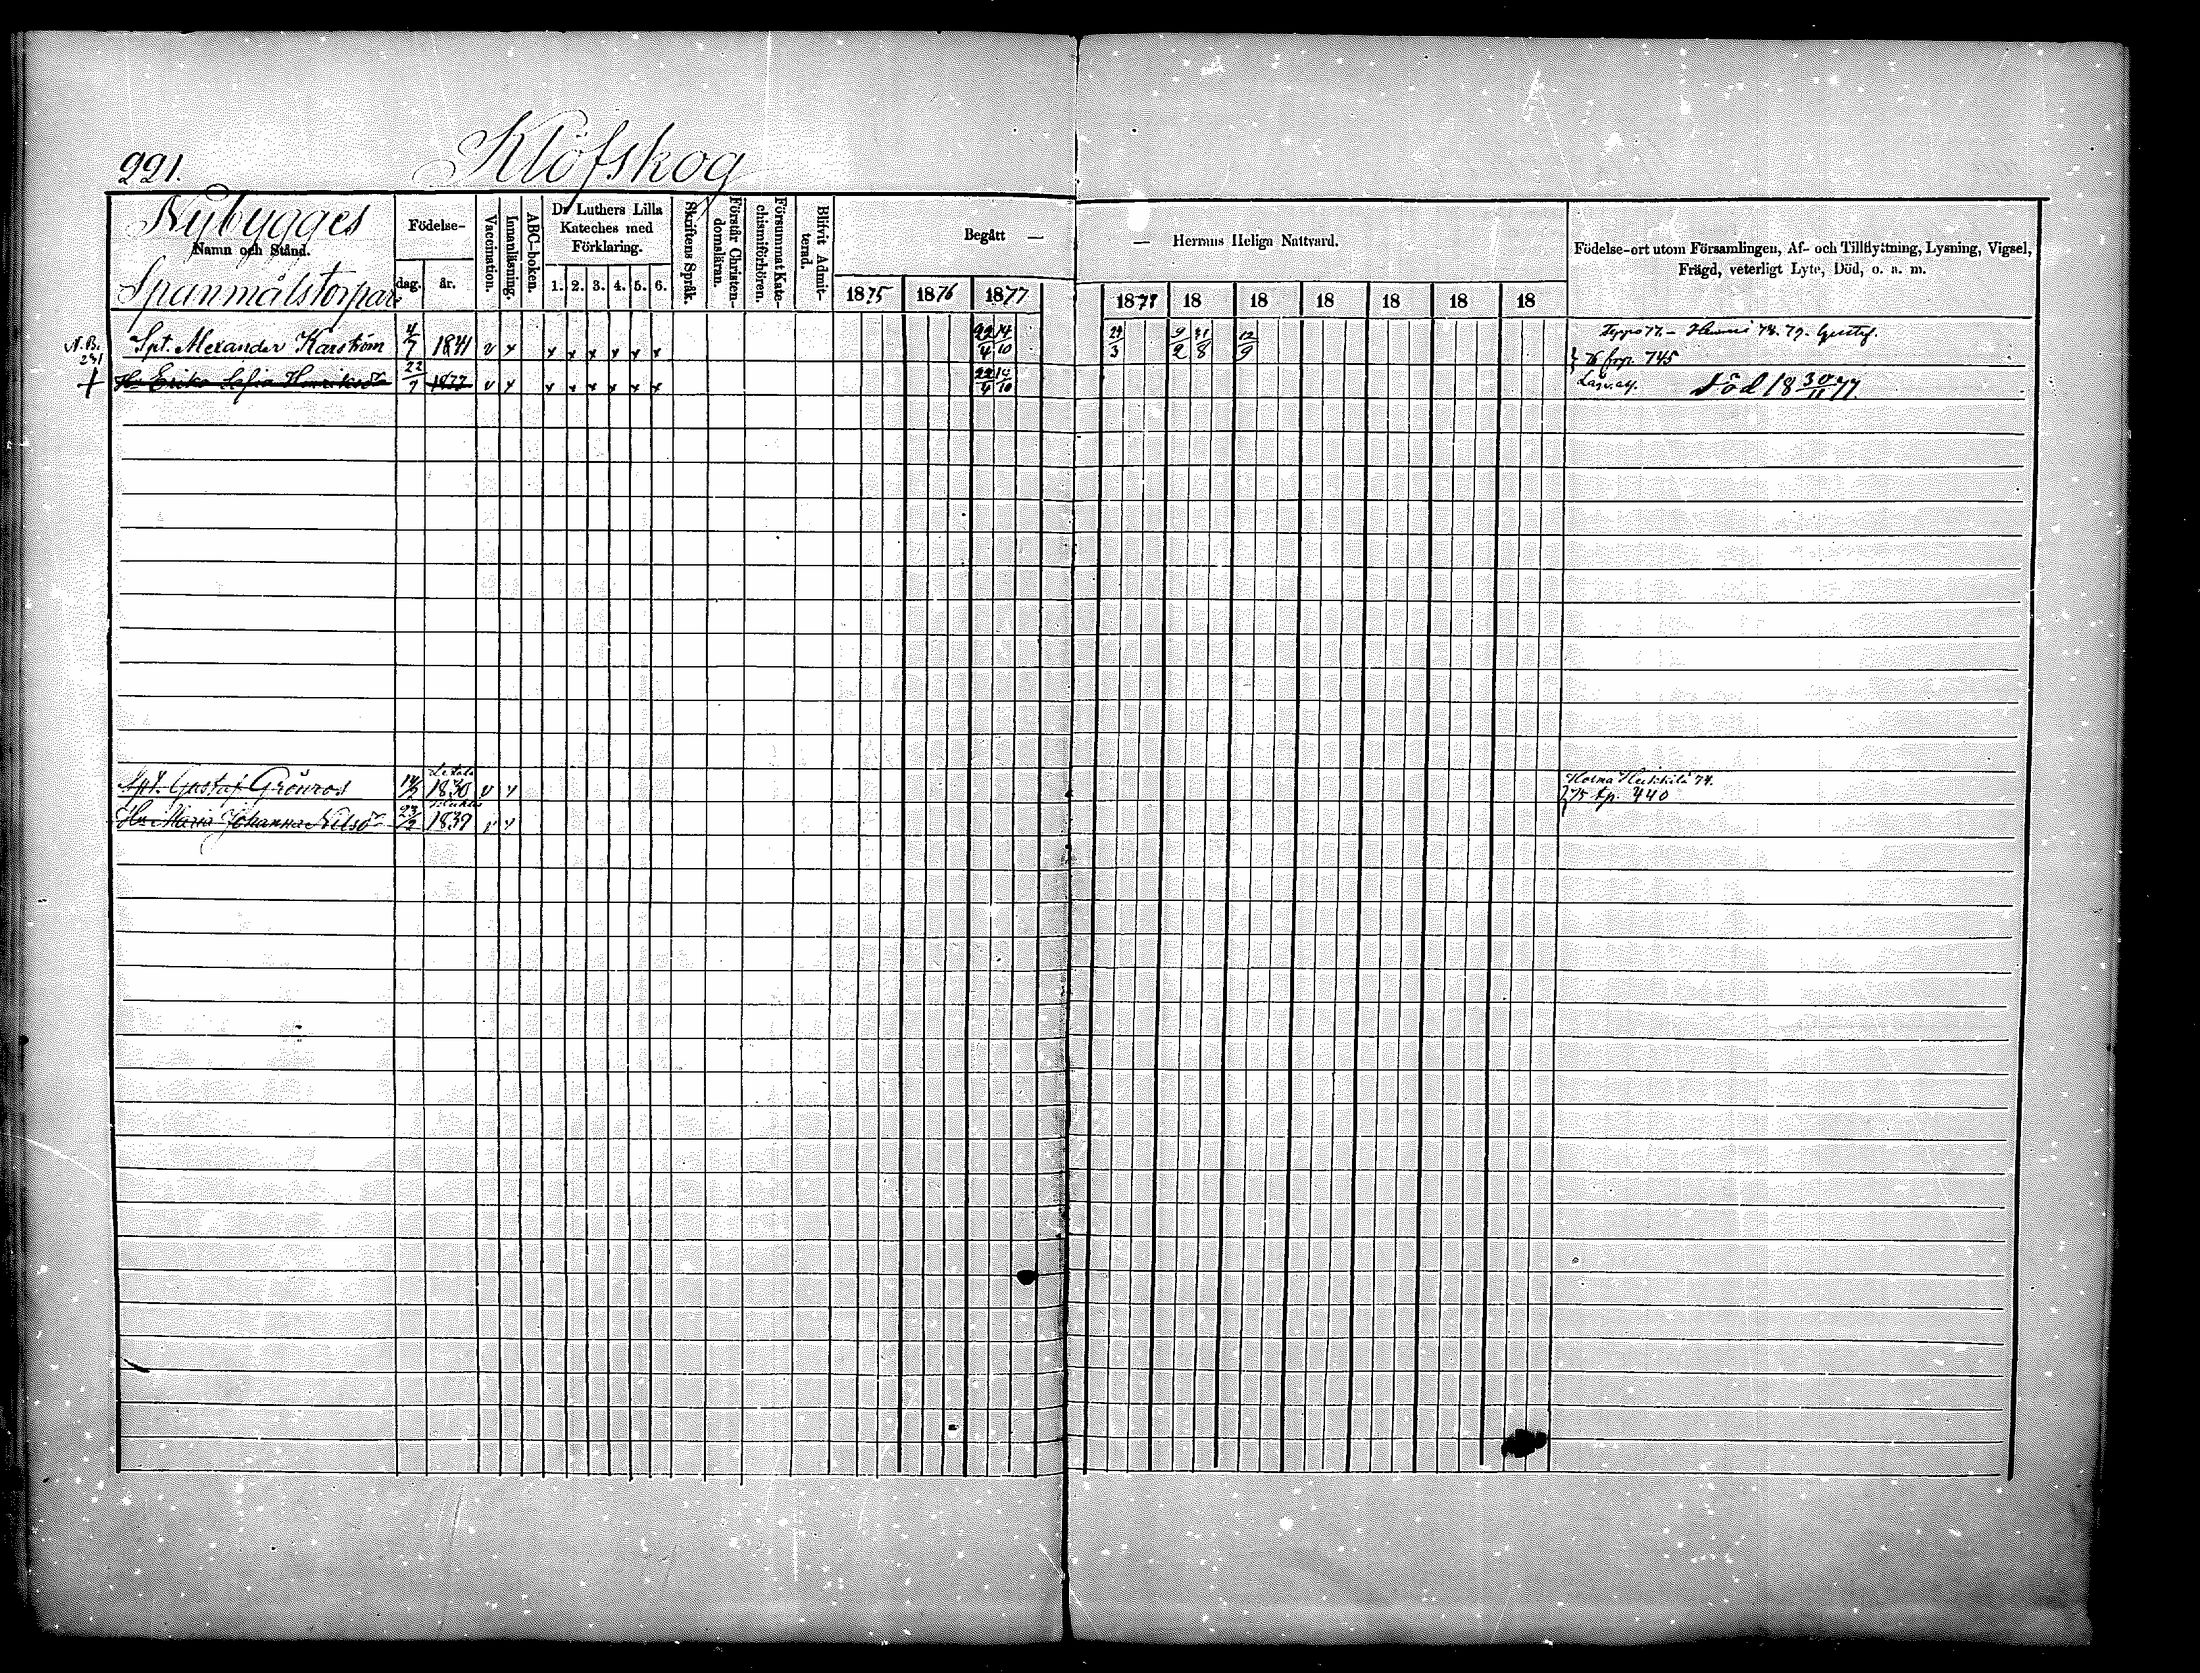 221.
Klöfskog
Nybygges
Namn och Stånd.
Spanmålstorpare
Födelse-
dag. år.
Vaccination.
Innanläsning.
ABC-boken.
Dr Luthers Lilla
Kateches med
Förklaring.
1. 2. 3. 4. 5. 6.
Skriftens Språk.
Förstår Christen-
domsläran.
Försummat Kate-
chismiförhören.
Blifvit Admit-
terad.
Begått —
— Herrans Heliga Nattvard.
1875 1876 1877 1878 18 18 18 18 18 18
Födelse-ort utom Församlingen, Af- och Tillflyttning, Lysning, Vigsel,
Frägd, veterligt Lyte, Död, o. a. m.
N.B.
231
Spt. Alexander Karström 4/7 1841 v x x x x x x x 22/4 14/10 23/3 9/2 31/8 12/9
745
Hu Erika Sofia Henriksdr 22/7 v x x x x x x x 22/4 14/10 död 18 30/11 77.
Spt. Gustaf Grönros 14/2 1830 v x
75 tp. 440
Hu Maria Johanna Nilsdr 23/2 1839 v x